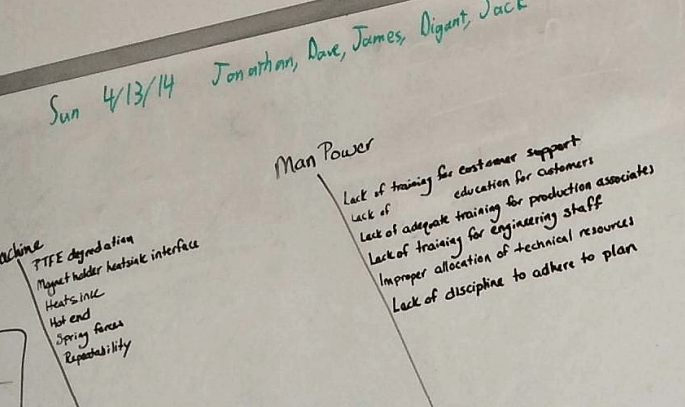 Sun 4/13/14 Jonathan, Dave, James, Digant, Jack
Man Power
Lack of training for customer support
Lack of education for customers
Lack of adequate training for production associates
Lack of training for engineering staff
Improper allocation of technical resources
Lack of discipline to adhere to plan
achine
PTFE degredation
Magnet holder heatsink interface
Heatsink
Hot end
Spring forces
Repeatability